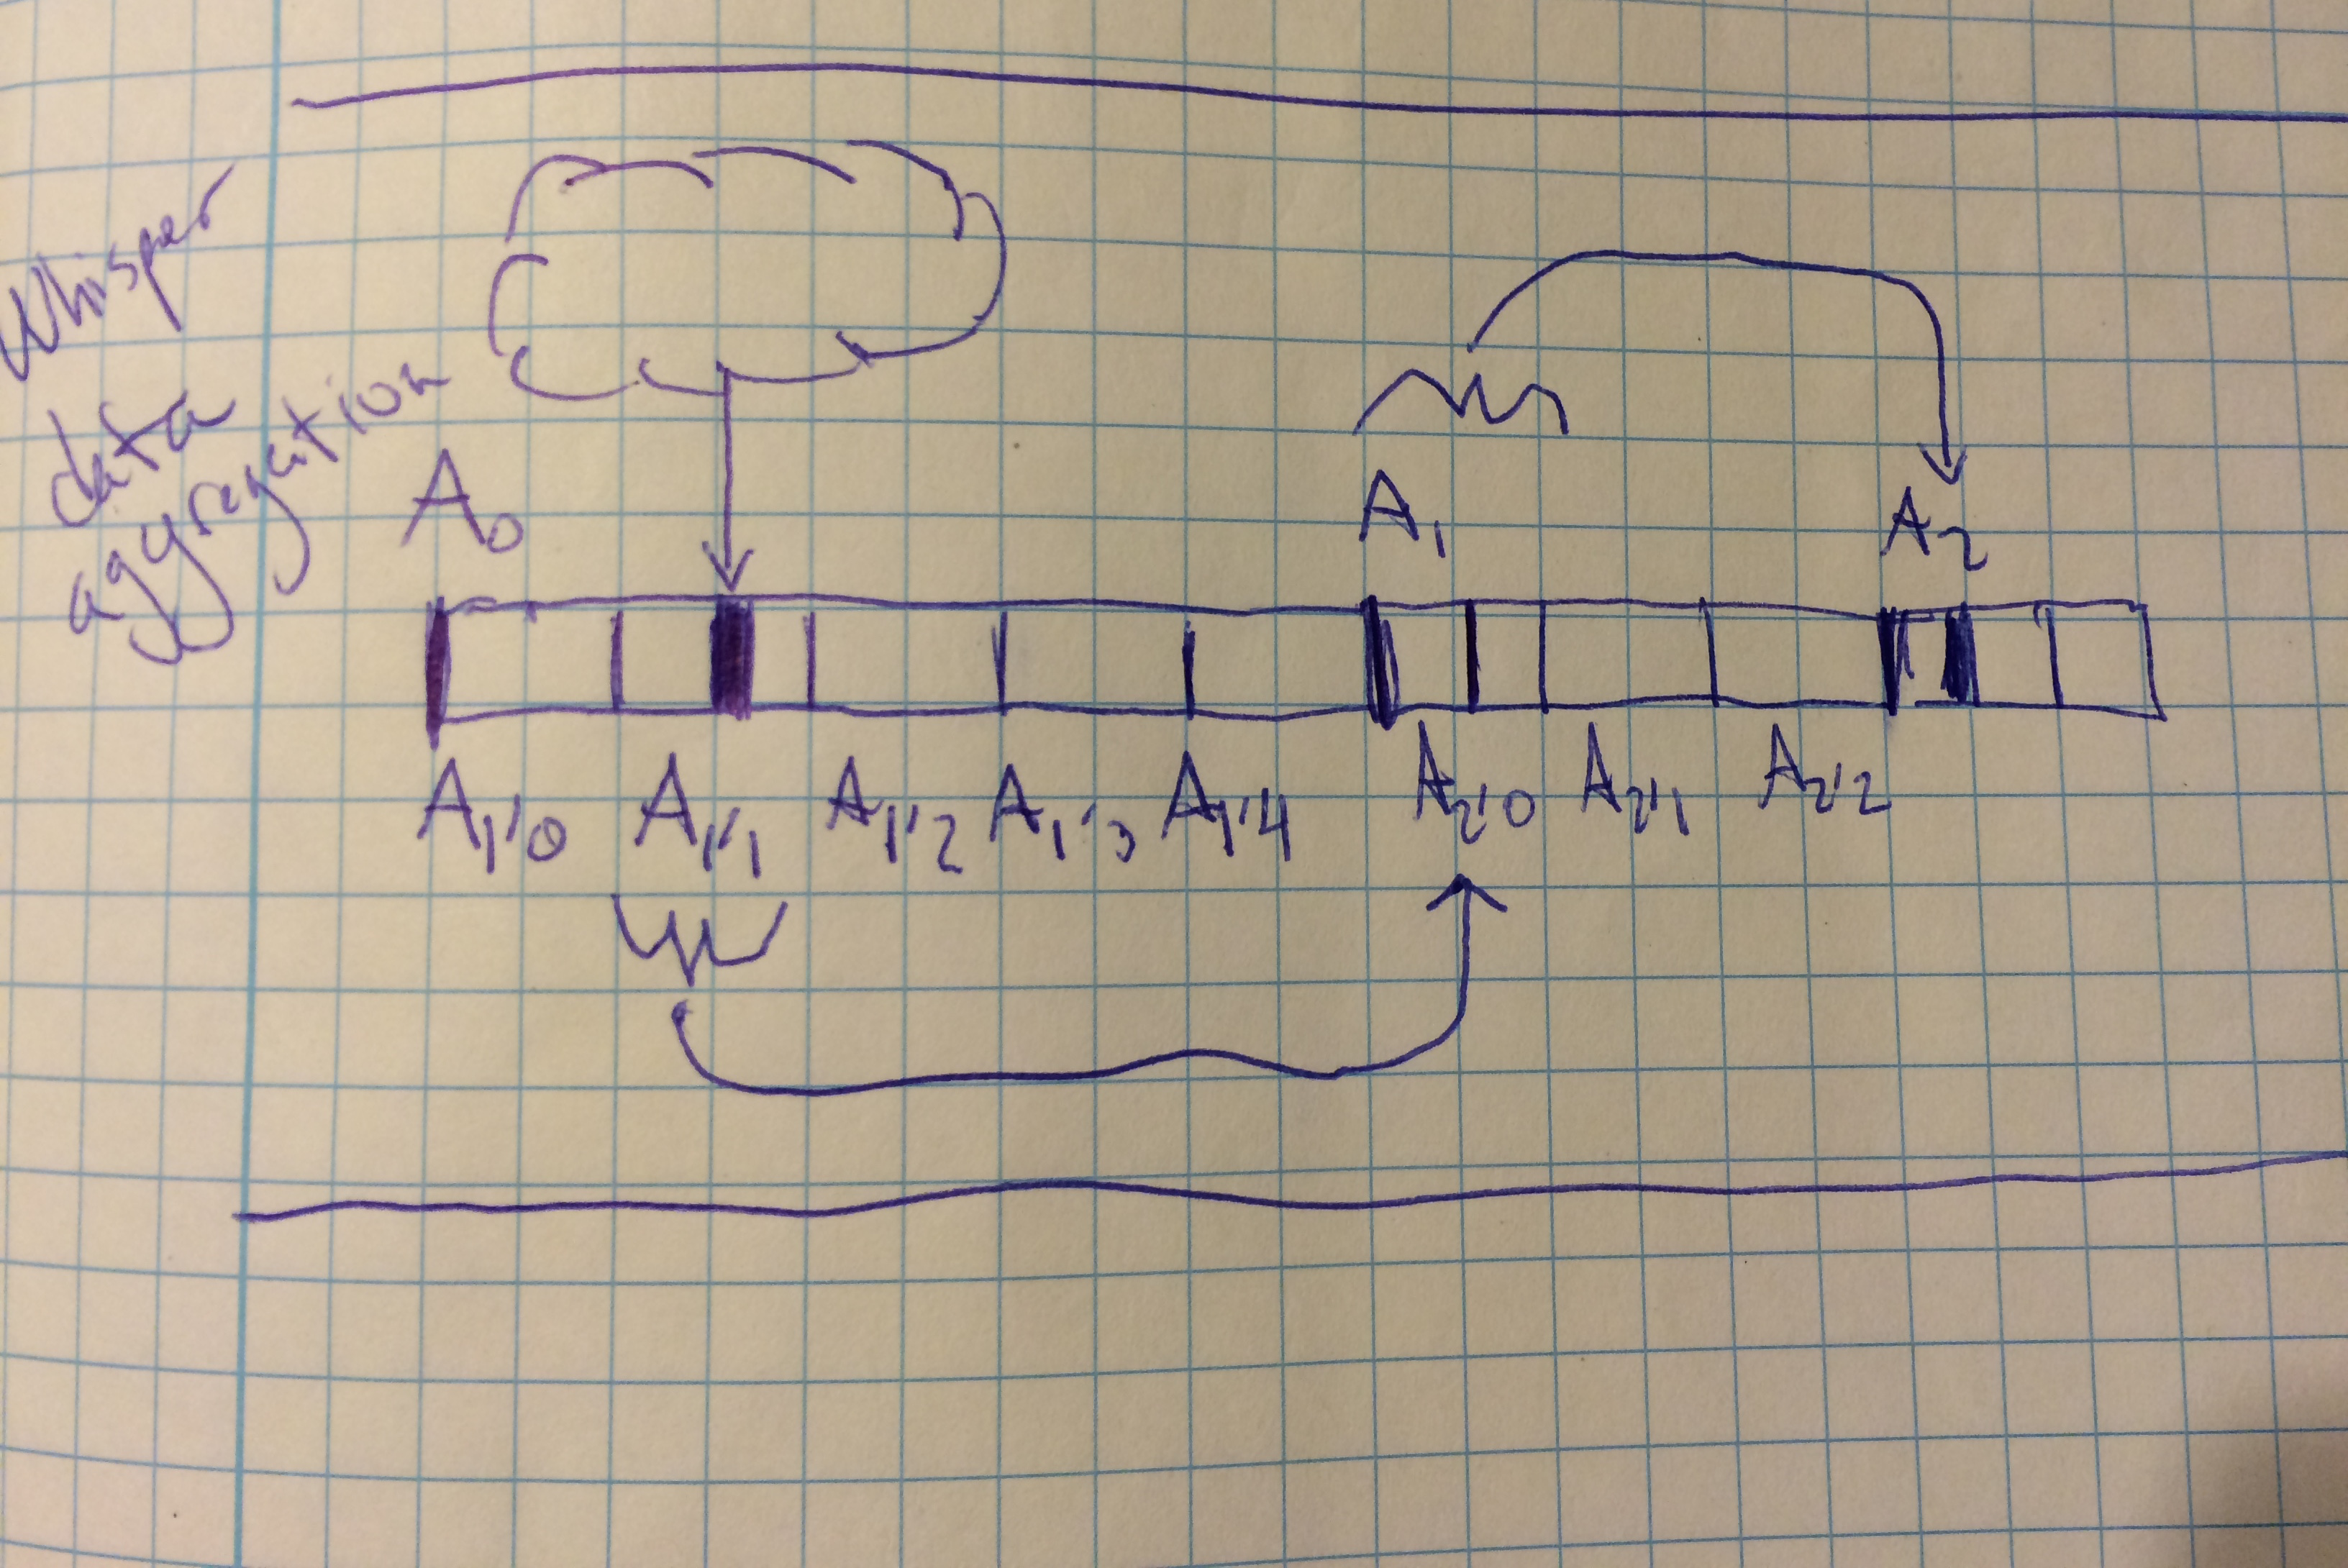 Whisper
data
aggregation
A₀ A₁ A₂
A₁'₀ A₁'₁ A₁'₂ A₁'₃ A₁'₄ A₂'₀ A₂'₁ A₂'₂